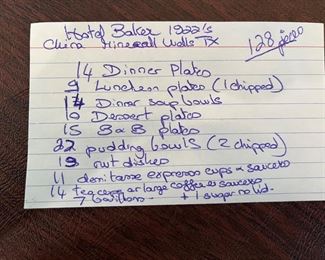 Hotel Baker 1922's
China Mineral Wells TX
128 pieces
14 Dinner Plates
9 Luncheon plates (1 chipped)
14 Dinner soup bowls
10 Dessert plates
15 B&B plates
22 pudding bowls (2 chipped)
19 nut dishes
11 demitasse espresso cups & saucers
14 tea cups or large coffee & saucers
7 bouillons + 1 sugar no lid.